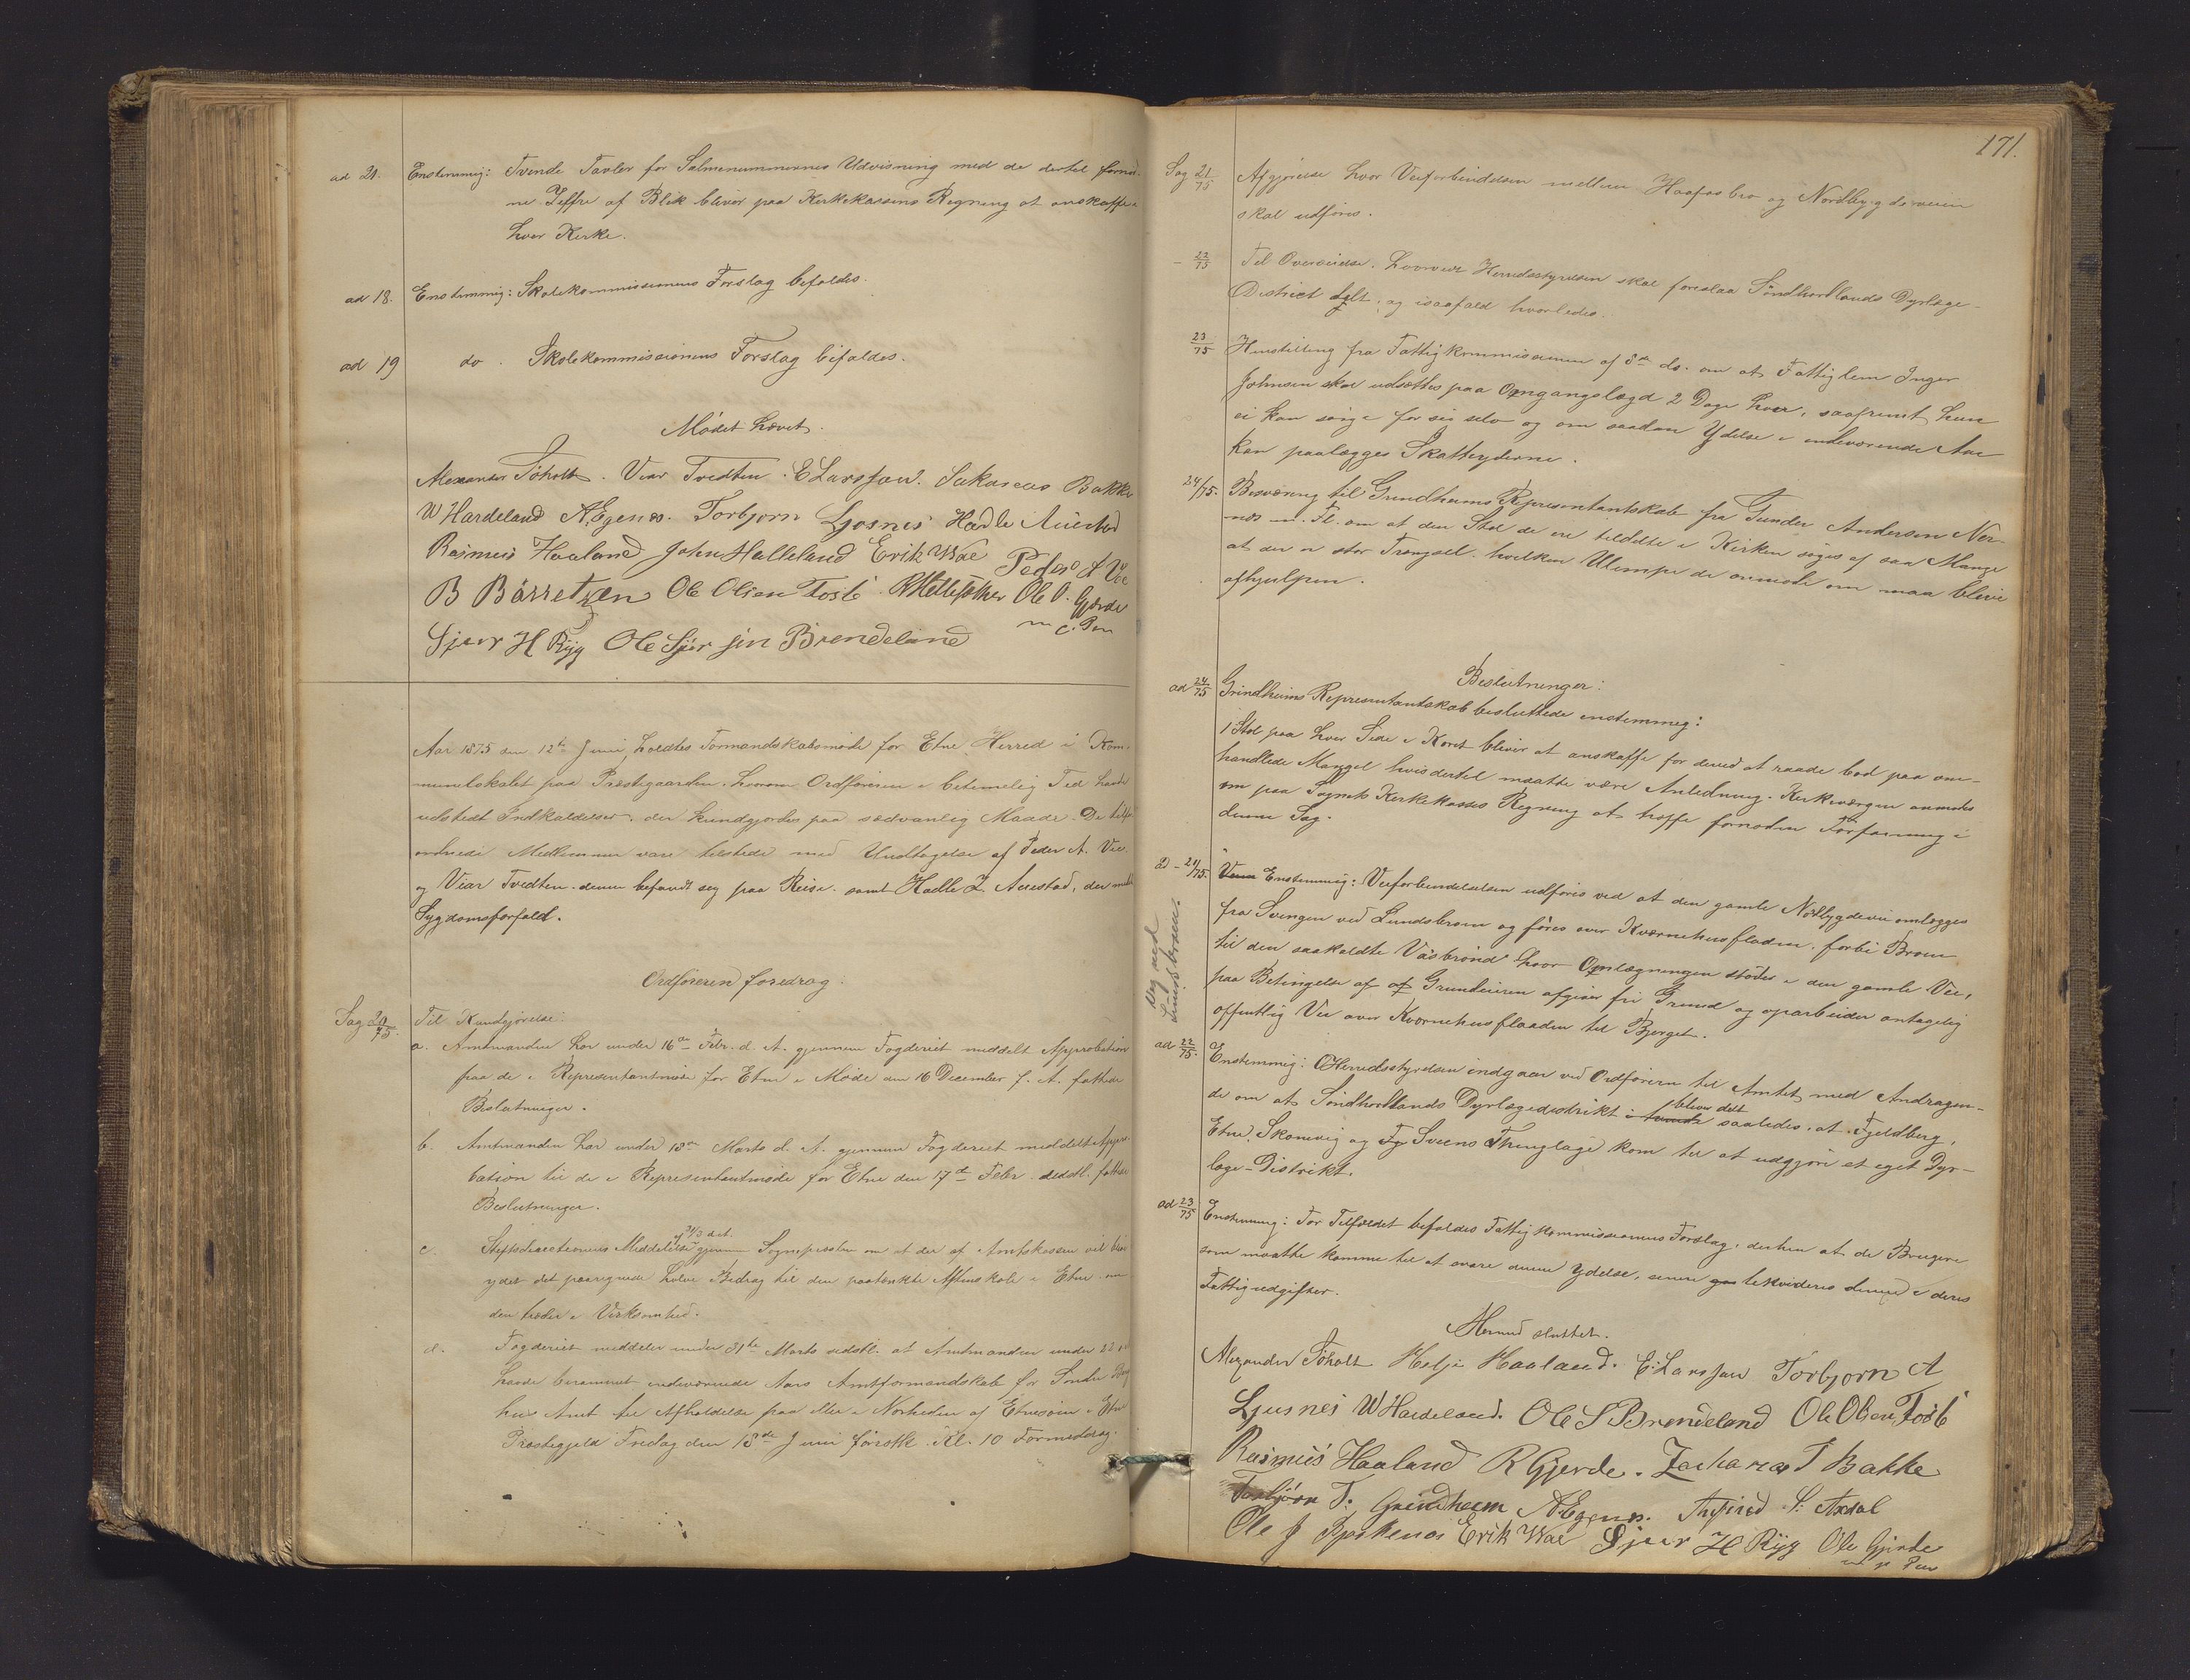 ad 21. Enstemmig: Tvende Tavler for Salmenummernes Udvisning med de dertil fornød-
ne Ziffre af Blik bliver paa Kirkekassens Regning at anskaffe i
hver Kirke.
ad 18. Enstemmig: Skolekommissionens Forslag bifaldes.
ad 19 do. Skolekommissionens Forslag bifaldes.
Mødet hævet.
Alexander Søholt. Viar Tvedten. E Larssen. Sakarias Bakke
W Hardeland A. Egenes. Torbjørn Ljosnes Hadle Auestad
Rasmus Haaland John Halleland Erik Wae Peder A Vee
B Børretzen Ole Olsen Tosse Ole O. Gjerde
m. P. Pen
Sjur H Ryg Ole Sjursen Brendeland
Aar 1875 den 12te Juni holdtes Formandskabsmøde for Etne Herred i Kom-
munelokalet paa Præstegaarden. hvorom Ordføreren i betimelig Tid havde
udstedt Indkaldelser, der kundgjordes paa sædvanlig Maade. De tilfor-
ordnede Medlemmer vare tilstede med Undtagelse af Peder A. Vee.
og Viar Tvedten. denne befandt seg paa Reise. samt Hadle L. Auestad, der meldte
Sygdomsforfald.
Ordføreren foredrog:
Sag 20/75. Til Kundgjørelse:
a. Amtmanden har under 16de Febr. d. A. gjennem Fogderiet meddelt Approbation
paa de i Representantmøde for Etne i Møde den 16 December f. A. fattede
Beslutninger.
b. Amtmanden har under 13de Marts d. A. gjennem Fogderiet meddelt Appro-
bation til de i Representantmøde for Etne den 17de Febr. sidstl. fattede
Beslutninger.
c. Stiftsdirectionens Meddelelse gjennem Sognepresten om at der af Amtskassen vil blive
ydet det paaregnede halve Bidrag til den paatænkte Aftenskole i Etne. naar
den træder i Virksomhed.
d. Fogderiet meddeler under 31te Marts sidstl. at Amtmanden under 22
havde berammet indeværende Aars Amtformandskab for Søndre Berg-
hus Amt til Afholdelse paa eller i Nærheden af Etnesøen i Etne
Præstegjeld Fredag den 18de Juni førstk. Kl. 10 Formiddag.
171.
Sag 21/75 Afgjørelse hvor Veiforbindelsen mellem Haafosbro og Nordbygdsveien
skal udføres.
- 22/75 Til Overveielse. hvorvidt Herredsstyrelsen skal foreslaa Søndhorllands Dyrlæge-
District delt, og isaafald hvorledes.
23/75 Henstilling fra Fattigkommissionen af 8de ds. om at Fattiglem Inger
Johnsen skal udsættes paa Omgangslægd 2 Dage hver, saafremt hun
ei kan sørge for sig selv og om saadan Ydelse i indeværende Aar
kan paalægges Skatteyderne.
24/75. Besværing til Grindheims Representantskab fra Gunder Andersen Ner-
nes m. Fl. om at den Stol de ere tildelte i Kirken søges af saa Mange
at der er stor Trængsel. hvilken Ulempe de anmode om maa blive
afhjulpen.
Beslutninger:
ad 24/75 Grindheims Representantskab besluttede enstemmig:
1 Stol paa hver Side i Koret bliver at anskaffe for derved at raade bod paa om-
handlede Mangel hvis dertil maatte være Anledning. Kirkeværgen anmodes
om paa Sognets Kirkekasses Regning at træffe fornøden Forføining i
denne Sag.
ad - 21/75. Enstemmig: Veiforbindelselsen udføres ved at den gamle Nordbygdevei omlægges
fra Svingen ved Lundsbroen og føres over Kvernehusfladen, forbi Broen
til den saakaldte Vasbrønd hvor Omlægningen støder i den gamle Vei,
paa Betingelse af at Grundeieren afgiver fri Grund og oparbeider antagelig
offentlig Vei over Kvernehusflaaden til Bjerget.
Vej ved
Lundsbroen.
ad 22/75. Enstemmig: Herredsstyrelsen indgaar ved Ordføreren til Amtet med Andragen-
de om at Søndhorllands Dyrlægedistrikt bliver delt saaledes, at Fjeldberg,
Etne, Skonevig og Sveens Thinglage kom til at udgjøre et eget Dyr-
læge-Distrikt.
ad 23/75 Enstemmig: For Tilfældet bifaldes Fattigkommissionens Forslag, derhen at de Brugere
som maatte komme til at svare denne Ydelse, senere likvideres denne i deres
Fattigudgifter.
Hermed sluttet.
Alexander Søholt Helje Haaland. E. Larssen Torbjørn A
Ljusnes W Hardeland. Ole S Brendeland Ole Olsen Tosse
Rasmus Haaland R Gjerde. Zacharias T Bakke
Torbjørn T. Grindheim A. Egenes. S. Axdal
Ole J Erik Wae Sjur H Ryg Ole Gjerde
m. P. Pen